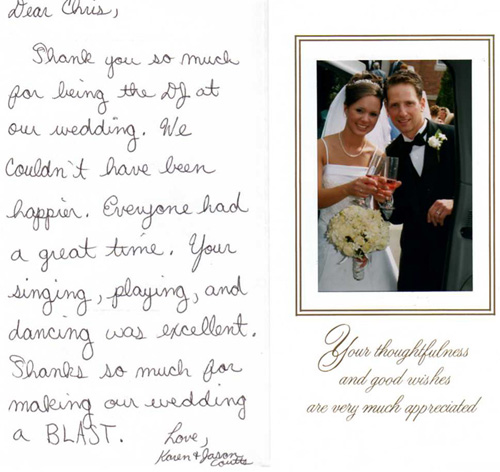 Dear Chris,
Thank you so much
for being the DJ at
our wedding. We
couldn't have been
happier. Everyone had
a great time. Your
singing, playing, and
dancing was excellent.
Thanks so much for
making our wedding
a BLAST.
Love,
Karen & Jason
Coutts
Your thoughtfulness
and good wishes
are very much appreciated